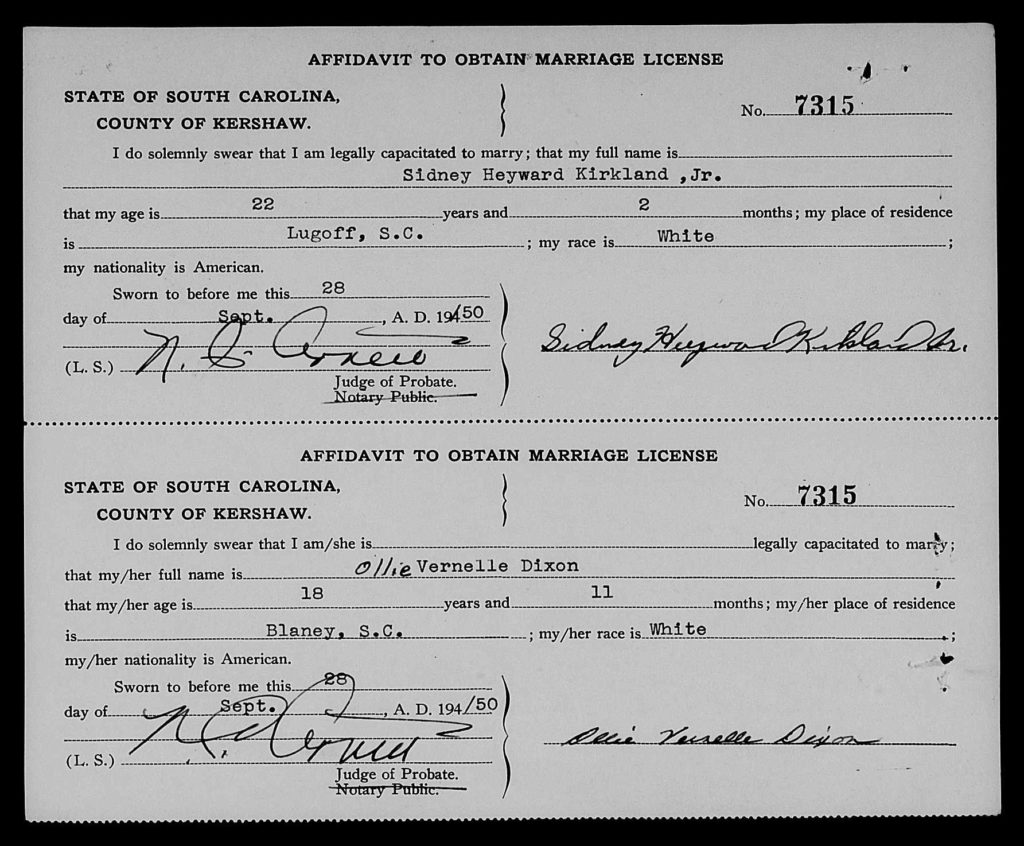 AFFIDAVIT TO OBTAIN MARRIAGE LICENSE
STATE OF SOUTH CAROLINA,
COUNTY OF KERSHAW.
No. 7315
I do solemnly swear that I am legally capacitated to marry; that my full name is
Sidney Heyward Kirkland ,Jr.
that my age is 22 years and 2 months; my place of residence
is Lugoff, S.C. ; my race is White ;
my nationality is American.
Sworn to before me this 28
day of Sept. , A. D. 194/50
Sidney Heyward Kirkland Jr.
(L. S.) N. C.
Judge of Probate.
Notary Public.
AFFIDAVIT TO OBTAIN MARRIAGE LICENSE
STATE OF SOUTH CAROLINA,
COUNTY OF KERSHAW.
No. 7315
I do solemnly swear that I am/she is legally capacitated to marry;
that my/her full name is Ollie Vernelle Dixon
that my/her age is 18 years and 11 months; my/her place of residence
is Blaney, S.C. ; my/her race is White ;
my/her nationality is American.
Sworn to before me this 28
day of Sept. , A. D. 194/50
Ollie Vernelle Dixon
(L. S.) N. C.
Judge of Probate.
Notary Public.